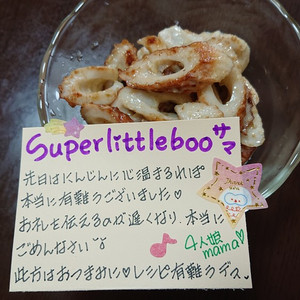 Superlittleboo サマ
先日はにんじんに心温まるれぽ
本当に有難うございました♡
お礼を伝えるのが遅くなり、本当に
ごめんなさい
4人娘
mama♡
此方はおつまみに♡レシピ有難うデス